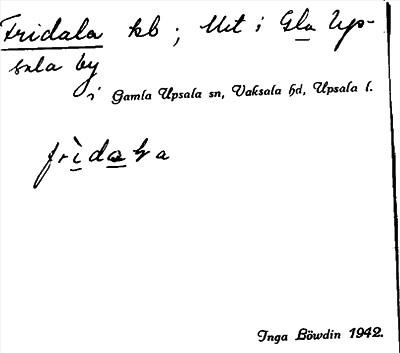 Fridala kb ; Utt i Gla Up-
sala by
i Gamla Upsala sn, Vaksala hd, Upsala l.
frìdaɽa
Inga Böwdin 1942.